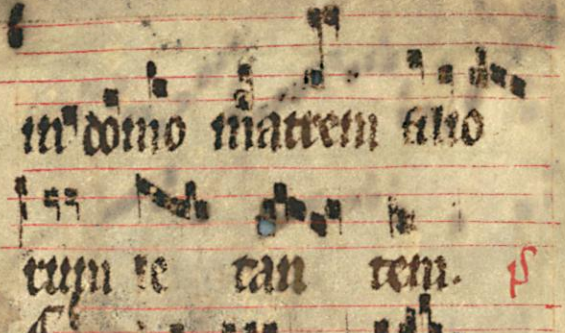 in domo matrem filio
rum le tan tem. ps